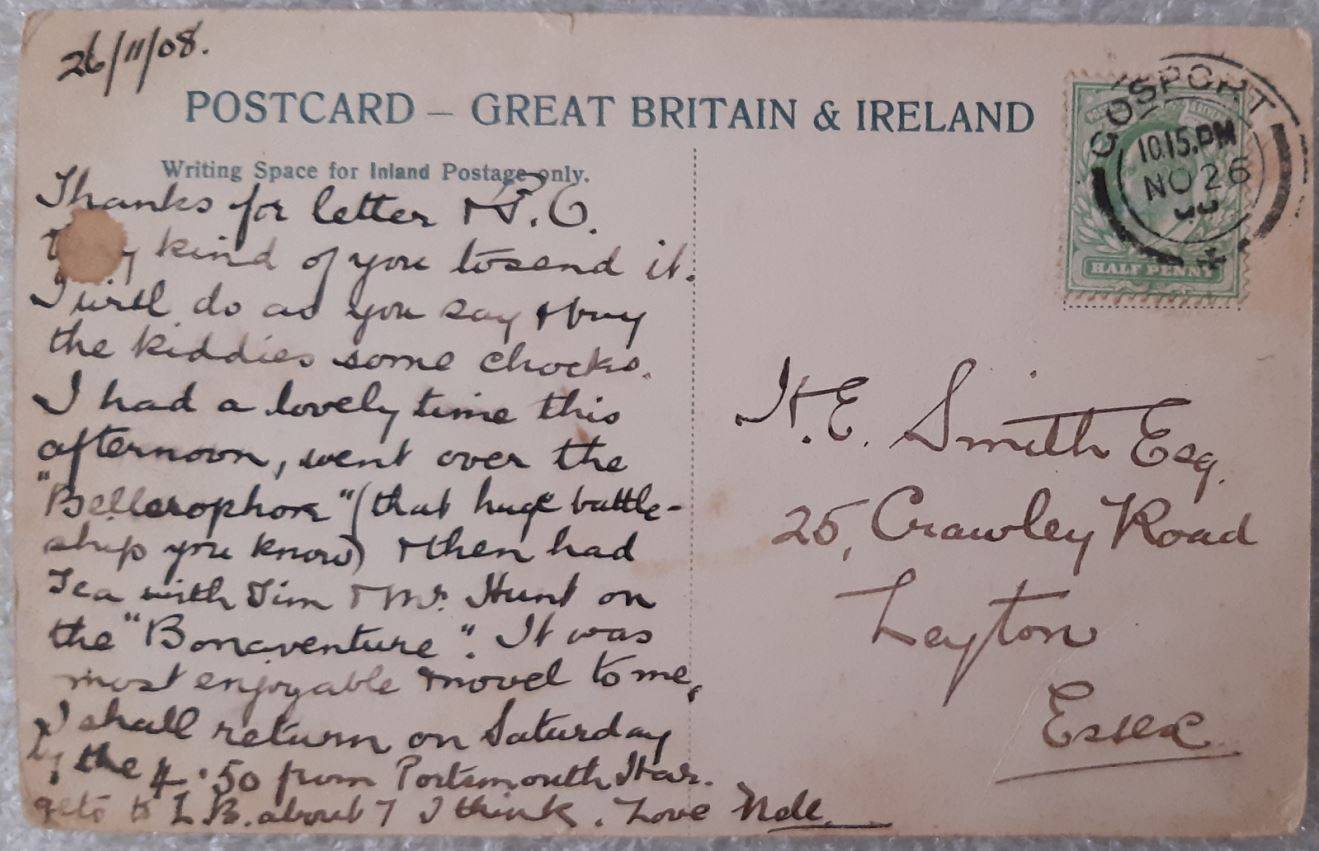 26/11/08.
POSTCARD – GREAT BRITAIN & IRELAND
Writing Space for Inland Postage only.
Thanks for letter & P.C.
kind of you to send it.
I will do as you say & buy
the kiddies some chocks.
I had a lovely time this
afternoon, went over the
"Bellerophon" (that huge battle-
ship you know) & then had
Tea with Jim & Mr. Hunt on
the "Bonaventure". It was
most enjoyable & novel to me,
I shall return on Saturday
by the 4.50 from Portsmouth Har.
gets to L.B. about 7 I think. Love Nell.
GOSPORT
10.15.PM
NO 26
HALF PENNY
H.E. Smith Esq.
25, Crawley Road
Leyton
Essex